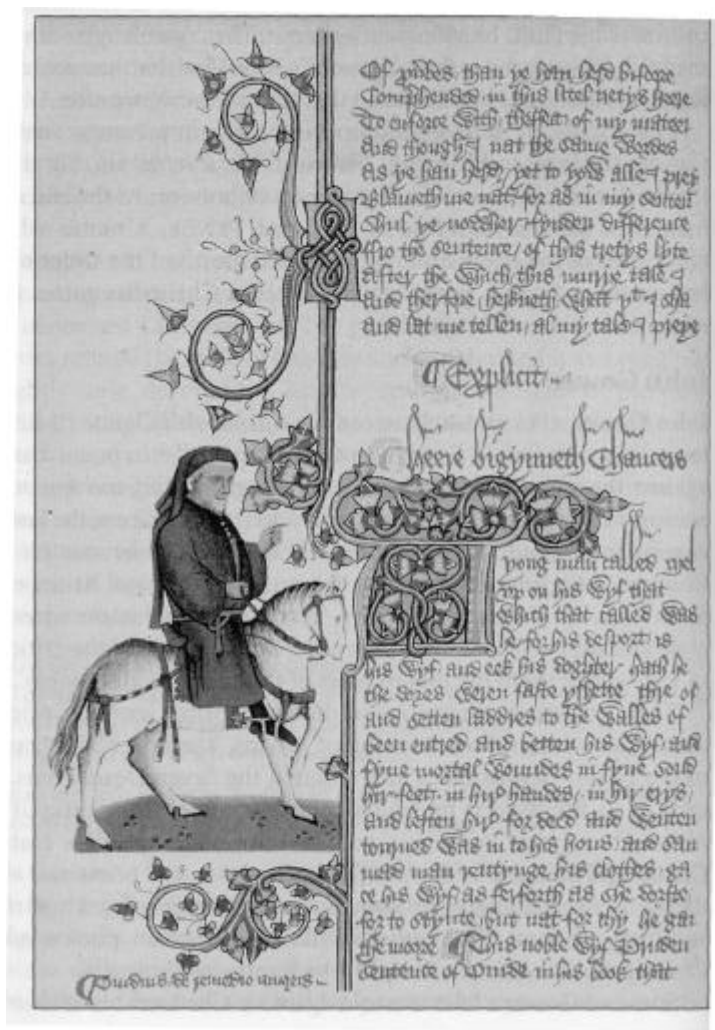 Of prouerbes than ye han herd bifore
Comprehended in this litel tretys heere
To enforce with theffect of my mateer
And though I nat the same wordes
As ye han herd / yet to yow alle I preye
Blameth me nat / for as in my sentence
Shul ye nowher fynden difference
ffro the sentence / of this tretys lyte
After the which this murye tale I
And therfore herkneth what þt I sha
And lat me tellen al my tale I preye
¶ Explicit
¶ Heere bigynneth Chaucers
yong man called Mel
vp on his wyf that
which that called was
he for his desport is
his wyf and eek his doghter hath he
the dores weren faste yshette thre of
and setten laddres to the walles of
been entred and betten his wyf and
fyue mortal woundes in fyue sond
hir feet in hir handes / in hir erys
and leften hir for deed and wenten
torned was in to his hous and sau
mad man rentynge his clothes ga
ce his wyf as ferforth as she dorste
for to stynte / but nat for thy he gan
the moore ¶ This noble wyf Pruden
sentence of Ouide in his book that
¶ Ouidius de remedio amoris